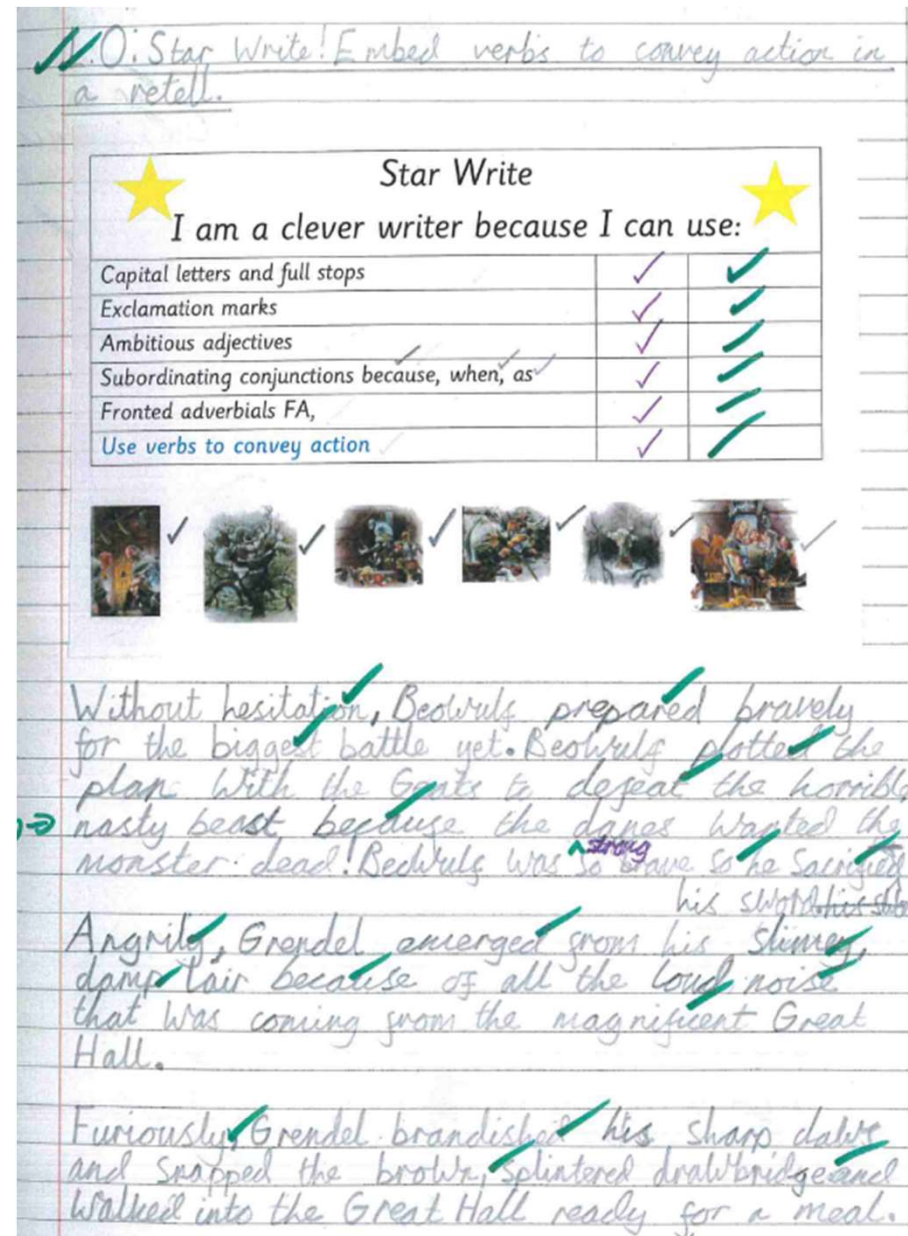 L.O: Star Write! Embed verbs to convey action in
a retell.
Star Write
I am a clever writer because I can use:
Capital letters and full stops
Exclamation marks
Ambitious adjectives
Subordinating conjunctions because, when, as
Fronted adverbials FA,
Use verbs to convey action
Without hesitation, Beowulf prepared bravely
for the biggest battle yet. Beowulf plotted the
plan With the Geats to defeat the horrible
nasty beast because the danes wanted the
monster dead! Beowulf was so strong brave so he Sacrificed
his sword
Angrily, Grendel emerged from his slimey,
damp lair because of all the loud noise
that was coming from the magnificent Great
Hall.
Furiously, Grendel brandished his sharp claws
and snapped the brown, splintered drawbridge and
walked into the Great Hall ready for a meal.